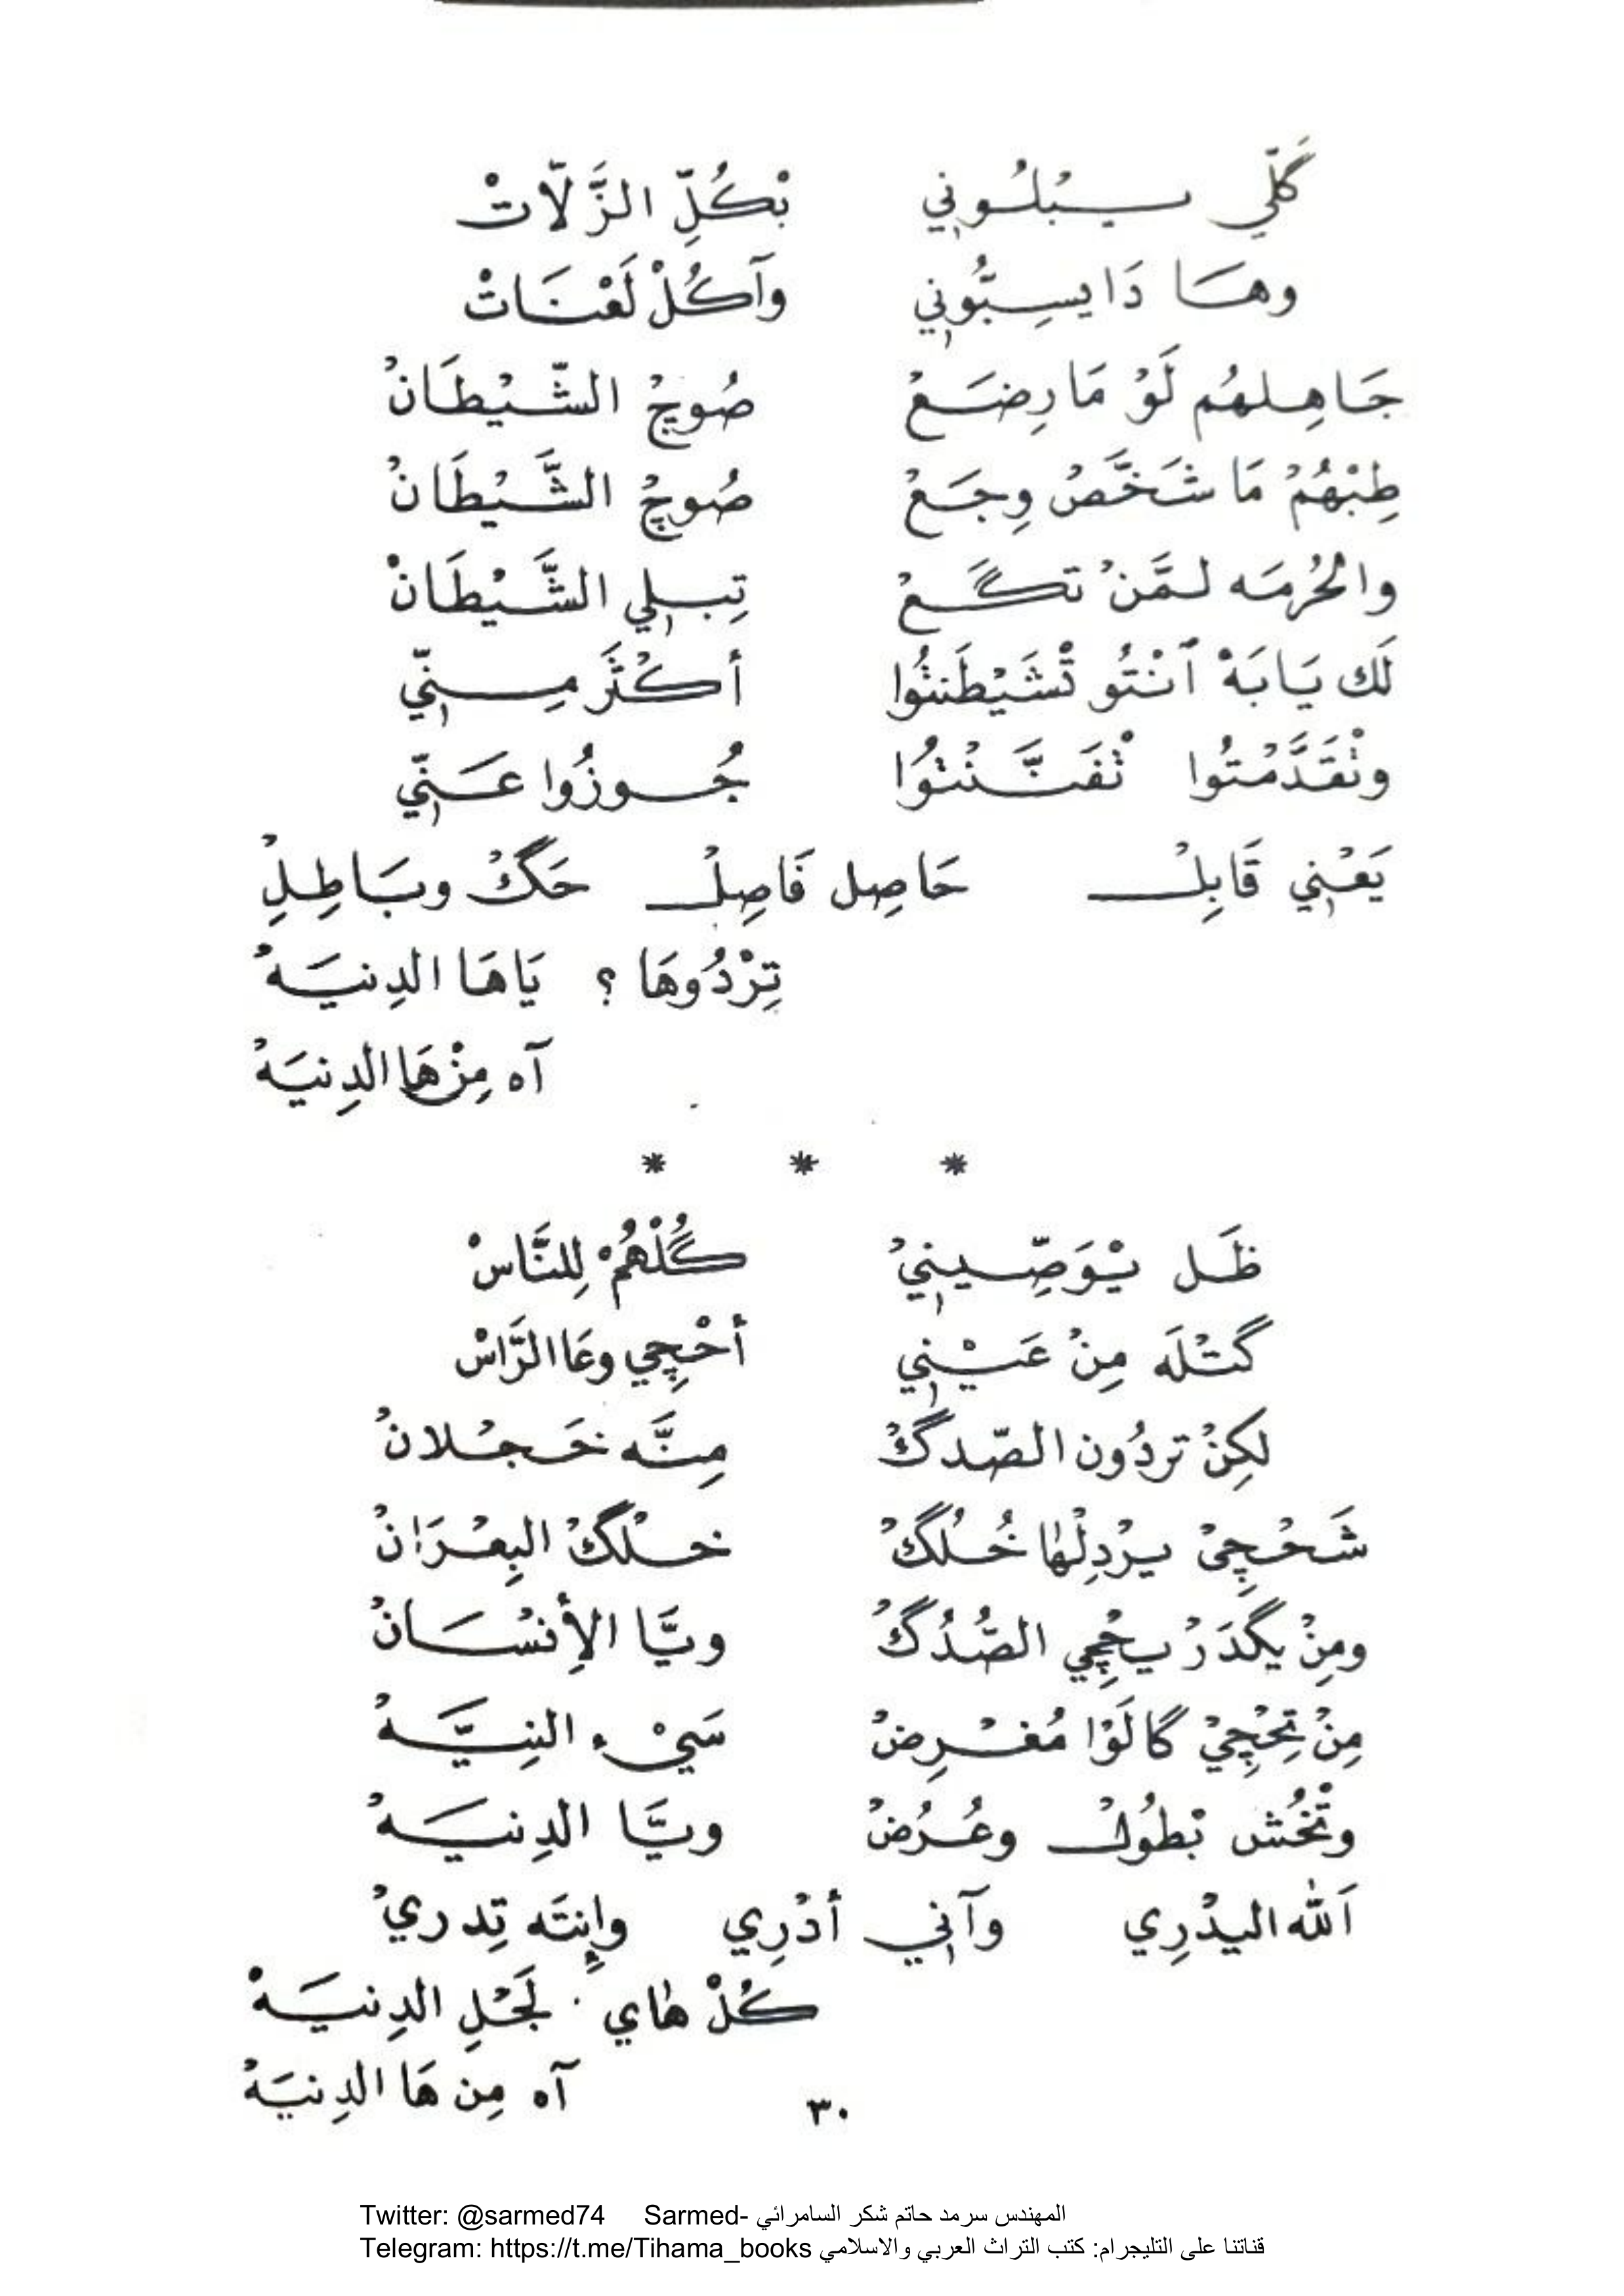 گَلّي سـيـبْلُـوني بْكُلِّ الزَّلّاتْ
وهـَـا دَا يسِبُّوني وآكُلْ لَعْنَـاتْ
جَـاهِـلهُم لَوْ مَا رِضـَعْ صُوچْ الشّيْطَانْ
طِبْهُمْ مَا شَخَّصْ وِجَـعْ صُوچْ الشَّيْطَانْ
والحُرمَه لـمَّنْ تگَـعْ تِبـلِي الشَّيْطَانْ
لَك يَـابَهْ ٱنْتُو تْشَيْطَنتُوا أكْثَر مِـنّي
وتْقَدَّمْتُوا تْفَنَّـنْتُوا جُـوزُوا عَـنّي
يَعْني قَابِلْ حَاصِل فَاصِلْ حَگْ وبَـاطِلِ
تِرْدُوهَا ؟ يَاهَا الدِنيَـهْ
آه مِنْ هَا الدِنيَهْ
* * *
ظَـل يْوَصِّـينيْ گُلْهُمْ لِلنَّاسْ
گتْلَه مِنْ عَيْـني أحْچِي وعَا الرَّاسْ
لكِنْ تردُون الصّدگْ مِنَّـه خَـجْلانْ
شَـحْچِيْ يرْدِلْها خُـلگْ خـلْگْ البِعْرَانْ
ومِنْ يگدَرْ يحْچِي الصُّدُگْ ويَّا الأِنْسَـانْ
مِنْ تِحْچِيْ گالَوْا مُغْـرِضْ سَيْء النِيَّـهْ
وتْخُش بْطُولْ وعُـرُضْ ويَّـا الدِنيَـهْ
اَلله اليدْرِي وآني أدْرِي وإِنتَه تِدريْ
كُلْ هاي لَجْلِ الدِنيَـهْ
آه مِن هَا الدِنيَهْ
٣٠
Twitter: @sarmed74 Sarmed- المهندس سرمد حاتم شكر السامرائي
Telegram: https://t.me/Tihama_books قناتنا على التليجرام: كتب التراث العربي والاسلامي